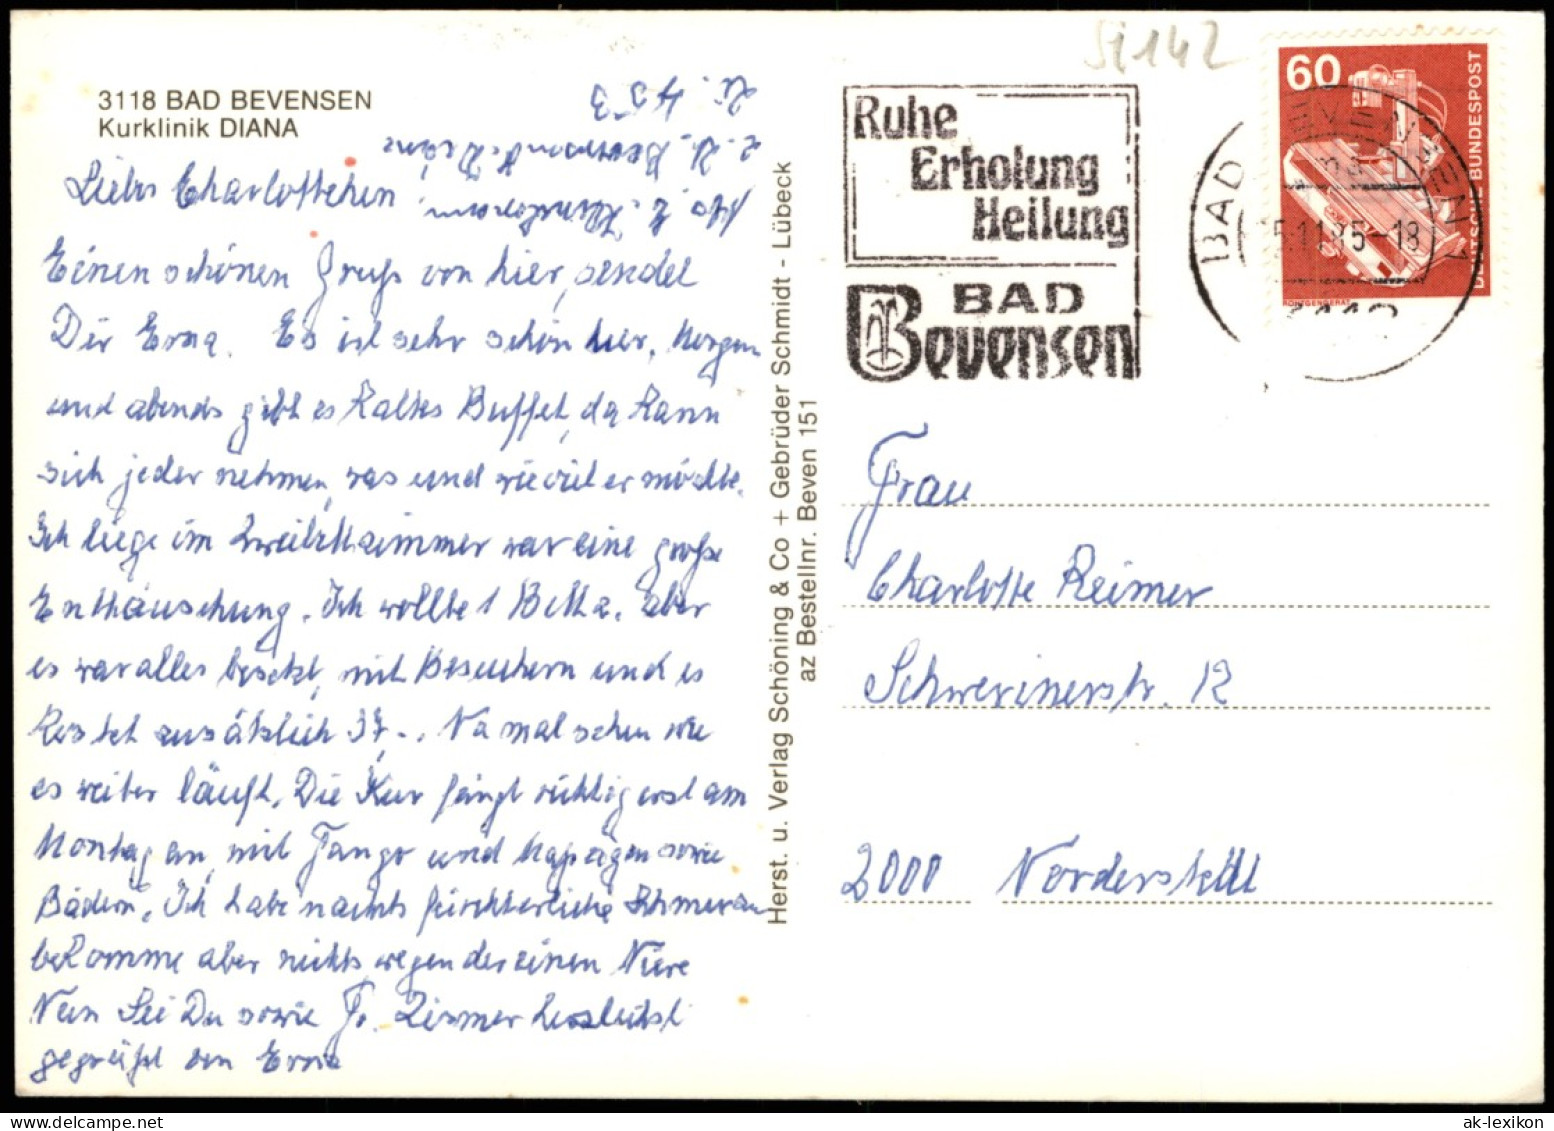 3118 BAD BEVENSEN
Kurklinik DIANA
Zi. 453
Liebes Charlottchen
Einen schönen Gruß von hier, sendet
Dir Erna. Es ist sehr schön hier, Morgen
und abends gibt es Kaltes Buffet, da kann
sich jeder nehmen, was und wieviel er möchte.
Ich liege im Zweibettzimmer war eine große
Enttäuschung. Ich wollte 1 Bett. aber
es war alles besetzt, mit Besuchern und es
kostet zusätzlich 37,-. Na mal sehen wie
es weiter läuft. Die Kur fängt richtig erst am
Montag an, mit Fango und sowie
Bädern. Ich habe nachts fürchterliche Schmerzen
bekomme aber nichts wegen der einen Niere
Nun Sei Du sowie Fr. Zismer herzlichst
gegrüßt von Erna
Herst. u. Verlag Schöning & Co + Gebrüder Schmidt - Lübeck
az Bestellnr. Beven 151
Si 142
Ruhe
Erholung
Heilung
BAD
Bevensen
BAD BEVENSEN 1
5.11.85-18
60
DEUTSCHE BUNDESPOST
RÖNTGENGERÄT
Frau
Charlotte Reimer
Schwerinerstr. 12
2000 Norderstedt
ak-lexikon.com